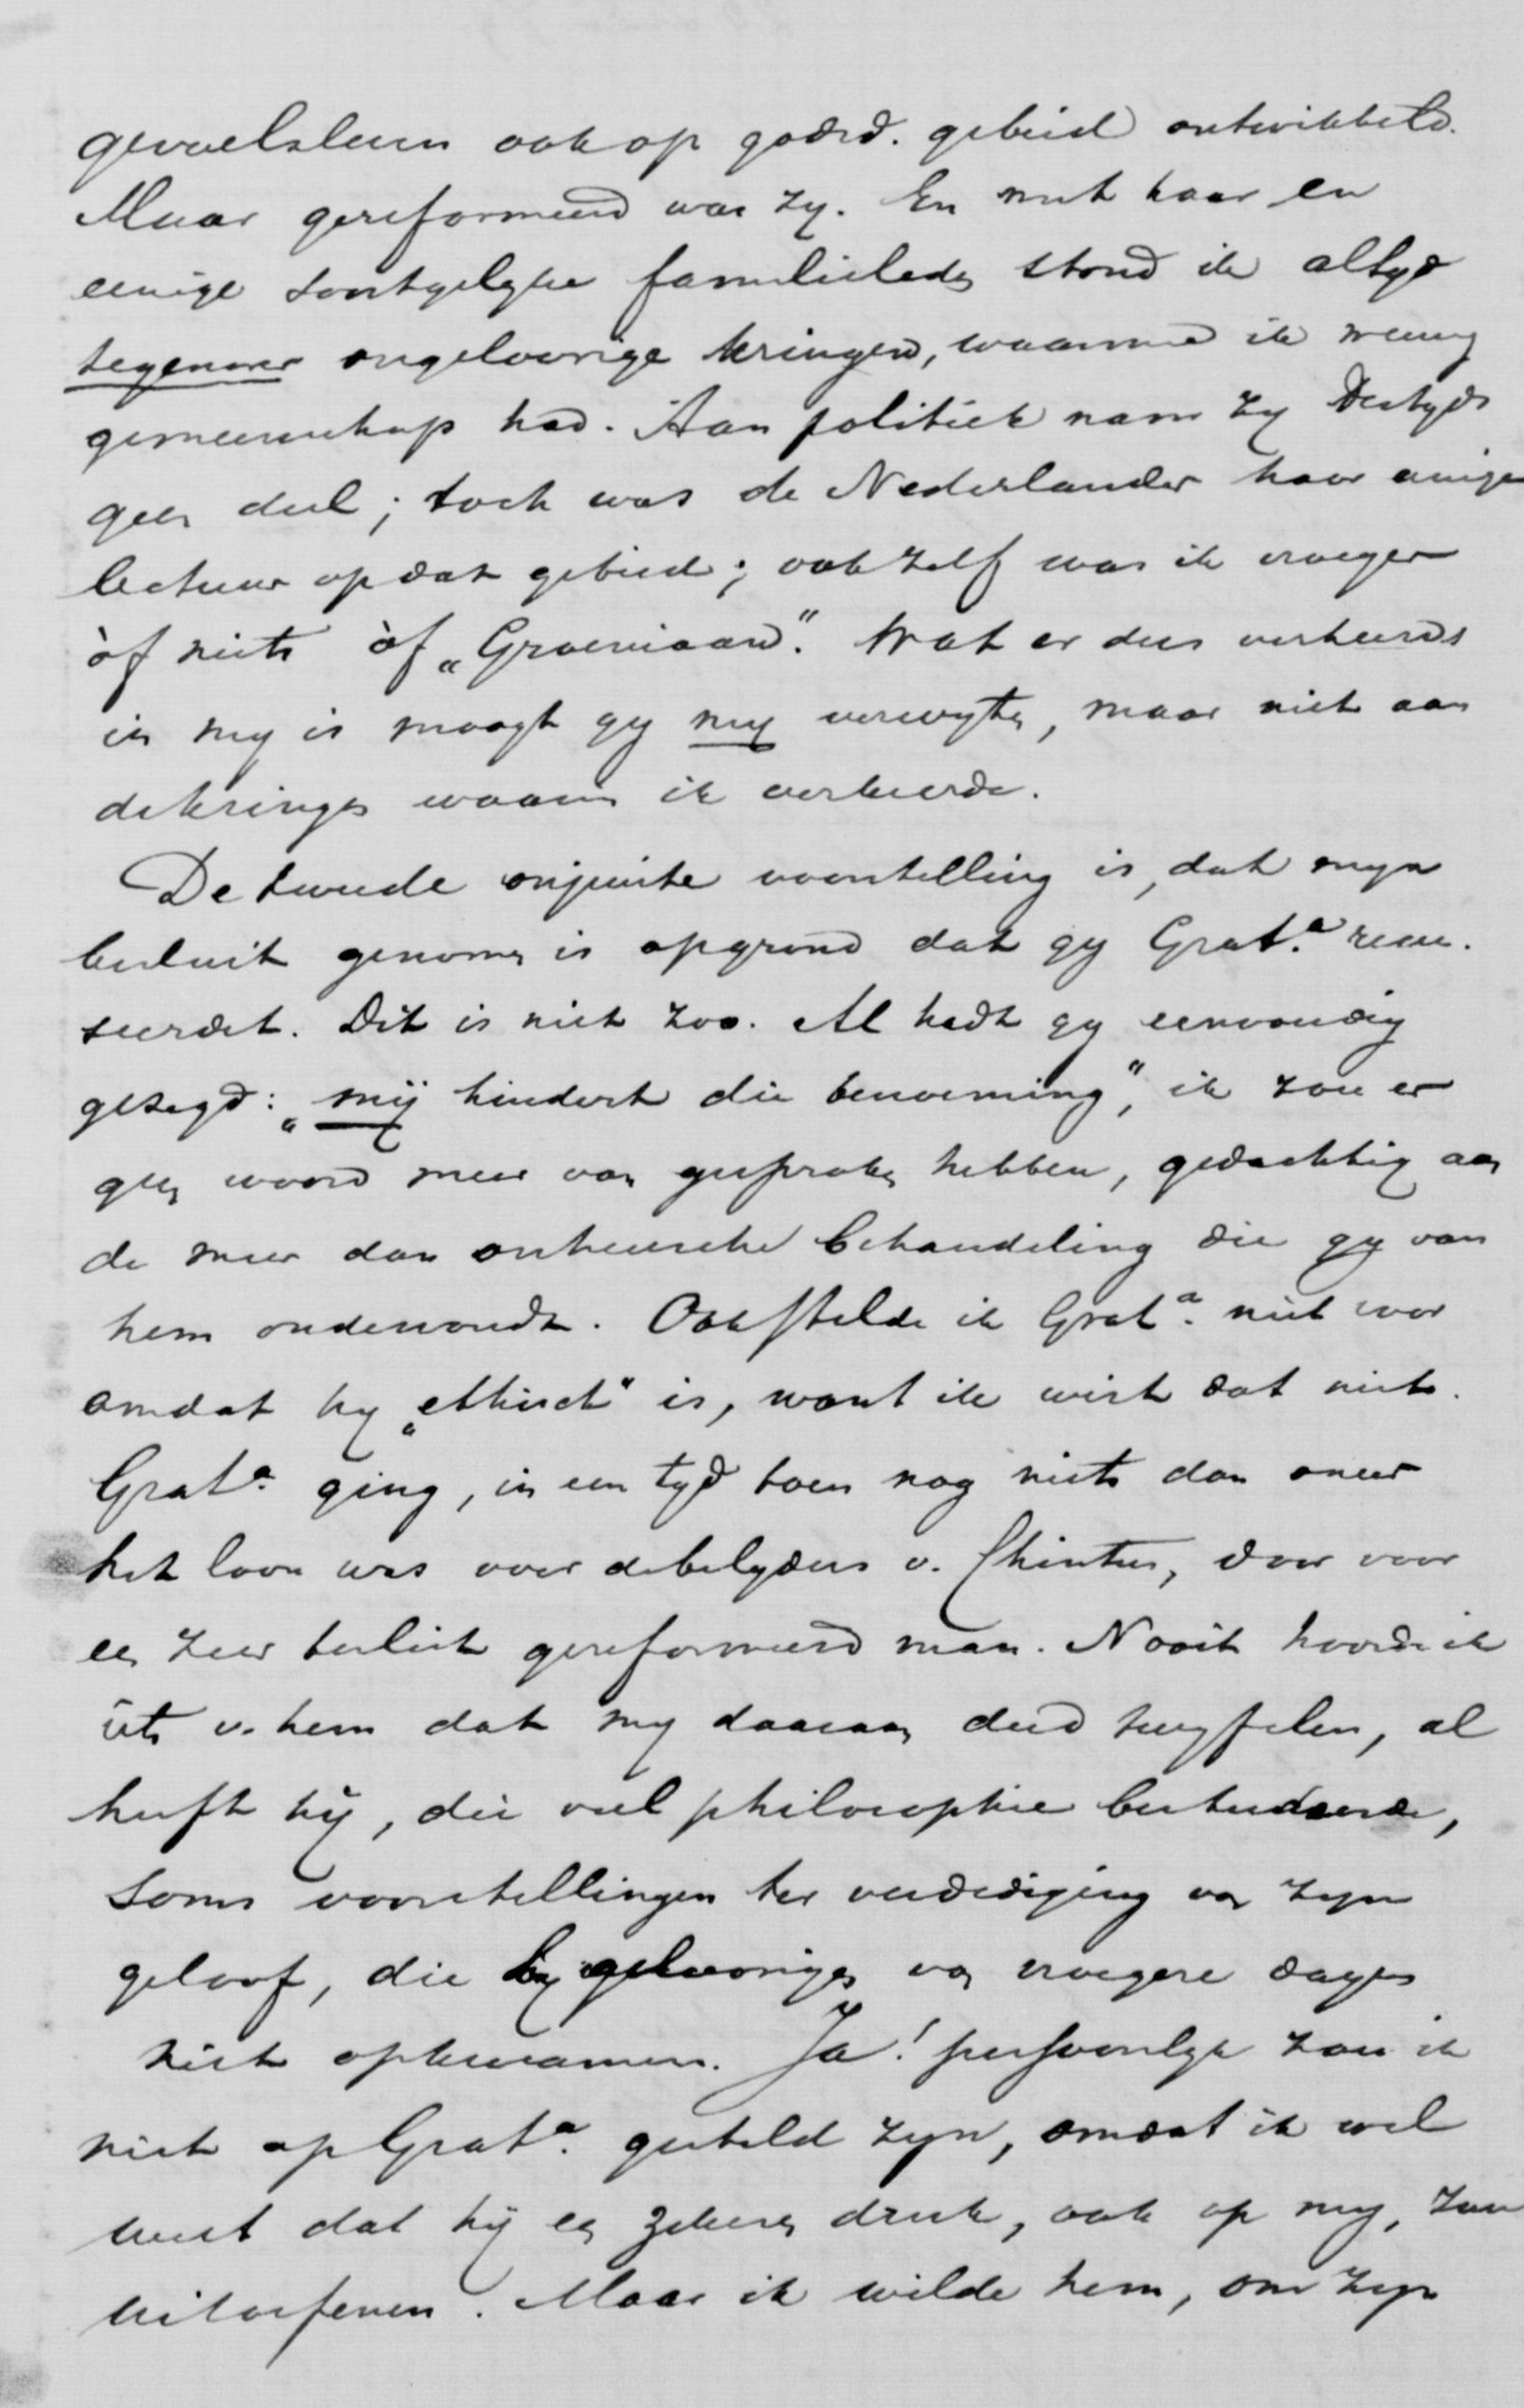 gevoelsleven ook op godsd. gebied ontwikkeld.
Maar gereformeerd was zy. En met haar en
eenige soortgelyke familieleden stond ik altyd
tegenover ongeloovige kringen, waarmed ik weinig
gemeenschap had. Aan politiek nam zy destyds
geen deel; toch was de Nederlander haar eenige
lectuur op dat gebied; ook zelf was ik vroeger
òf niets òf „Groeniaan”. Wat er dus verkeerds
in my is moogt gy my verwyten, maar niet aan
de kringen waarin ik verkeerde.
De tweede onjuiste voorstelling is, dat myn
besluit genomen is op grond dat gy Grat.a recu-
seerdet. Dit is niet zoo. Al hadt gy eenvoudig
gezegd: „mij hindert die benoeming”, ik zou er
geen woord meer van gesproken hebben, gedachtig aan
de meer dan onheusche behandeling die gy van
hem ondervondt. Ook stelde ik Grat.a niet voor
omdat hy „ethisch” is, want ik wist dat niet.
Grat.a ging, in een tyd toen nog niets dan oneer
het loon was voor de belyders v. Christus, door voor
een zeer beslist gereformeerd man. Nooit hoorde ik
iets v. hem dat my daaraan deed twyfelen, al
heeft hij, die veel philosophie bestudeerde,
soms voorstellingen ter verdediging van zyn
geloof, die by geloovigen van vroegere dagen
niet opkwamen. Ja! persoonlyk zou ik
niet op Grat.a gesteld zyn, omdat ik wel
weet dat hij een zekeren druk, ook op my, zou
uitoefenen. Maar ik wilde hem, om zyn